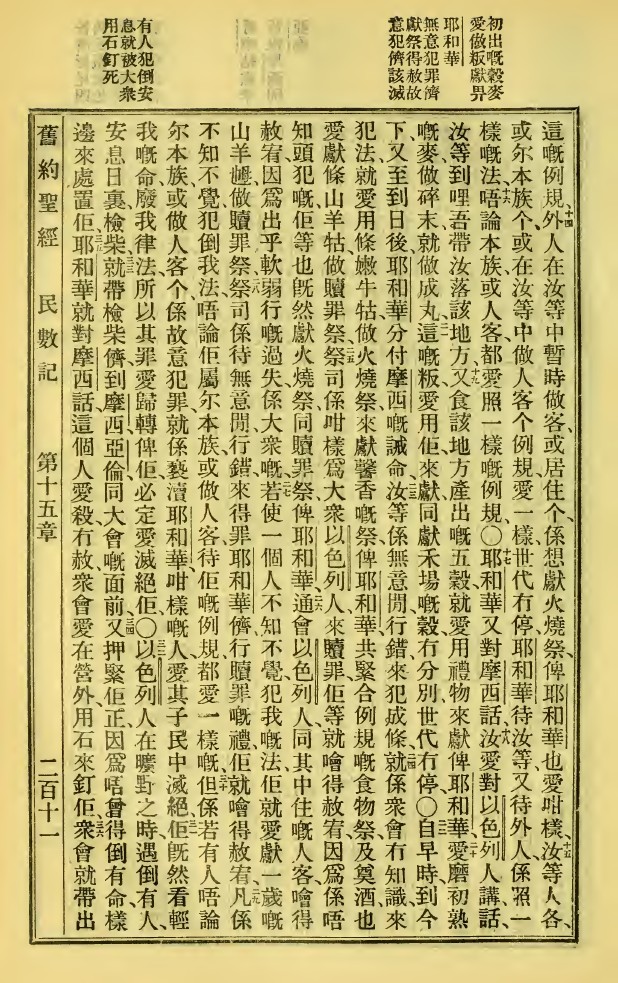 初出嘅穀麥
愛做粄獻畀
耶和華
無意犯罪儕
獻祭得赦故
意犯儕該滅
有人犯倒安
息就被大衆
用石釘死
這嘅例規、十四外人在汝等中暫時做客、或居住个、係想獻火燒祭俾耶和華也愛咁樣、十五汝等人各、
或尒本族个或在汝等中做人客个例規愛一樣世代冇停、耶和華待汝等又待外人係照一
樣嘅法、十六唔論本族或人客都愛照一樣嘅例規〇十七耶和華又對摩西話、十八汝愛對以色列人講話、
汝等到哩吾帶汝落該地方、十九又食該地方產出嘅五穀就愛用禮物來獻俾耶和華、二十愛磨初熟
嘅麥做碎末就做成丸、這嘅粄愛用佢來獻同獻禾場嘅穀冇分別、二一世代冇停〇二二自早時到今
下、又至到日後、耶和華分付摩西嘅誡命、二三汝等係無意閒行錯來犯成條、二四就係衆會冇知識來
犯法就愛用條嫩牛牯做火燒祭、來獻馨香嘅祭俾耶和華共緊合例規嘅食物祭、及奠酒也
愛獻條山羊牯做贖罪祭、二五祭司係咁樣爲大衆以色列人來贖罪、佢等就噲得赦宥、因爲係唔
知頭犯嘅、佢等也旣然獻火燒祭、同贖罪祭俾耶和華、二六通會以色列人同其中住嘅人客噲得
赦宥、因爲出乎軟弱行嘅過失、係大衆嘅、二七若使一個人不知不覺犯我嘅法、佢就愛獻一歲嘅
山羊𪨶做贖罪祭、二八祭司係待無意閒行錯來得罪耶和華儕行贖罪嘅禮、佢就噲得赦宥、二九凡係
不知不覺犯倒我法、唔論佢屬尒本族或做人客待佢嘅例規都愛一樣嘅、三十但係若有人唔論
尒本族或做人客个係故意犯罪就係褻瀆耶和華、咁樣嘅人愛其子民中滅絕、三一佢旣然看輕
我嘅命、廢我律法、所以其罪愛歸轉俾佢、必定愛滅絕佢〇三二以色列人在曠野之時、遇倒有人、
安息日裏檢柴、三三就帶檢柴儕到摩西亞倫、同大會嘅面前、三四又押緊佢、正因爲唔曾得倒有命樣
邊來處置佢、三五耶和華就對摩西話、這個人愛殺冇赦、衆會愛在營外用石來釘佢、三六衆會就帶出
舊約聖經　民數記　第十五章　二百十一